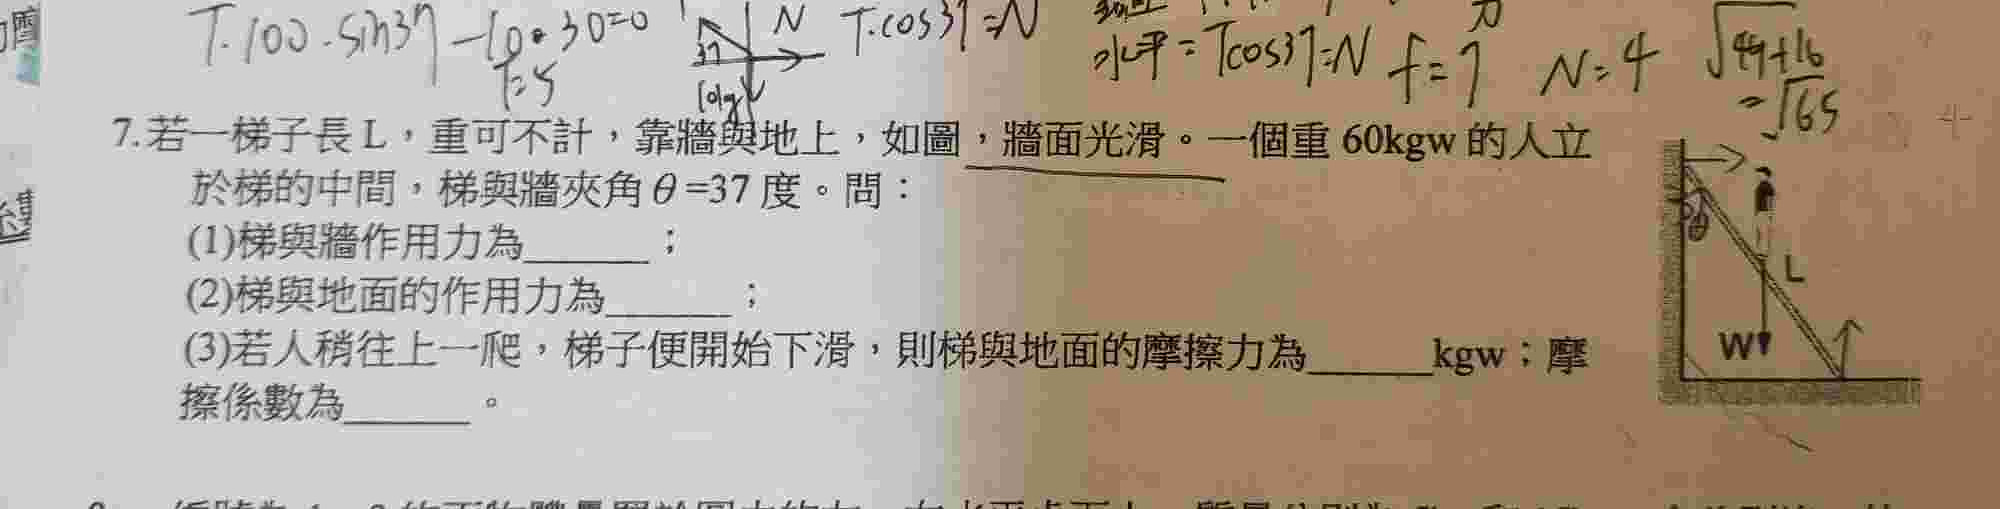 T·100·sin37 - 10·30=0
T=5
37
N
10kg
T·cos37=N
水平=Tcos37=N
f=7
N=4
√49+16
=√65
7.若一梯子長 L，重可不計，靠牆與地上，如圖，牆面光滑。一個重 60kgw 的人立
於梯的中間，梯與牆夾角θ=37 度。問：
(1)梯與牆作用力為______；
(2)梯與地面的作用力為______；
(3)若人稍往上一爬，梯子便開始下滑，則梯與地面的摩擦力為______kgw；摩
擦係數為______。
θ
L
W